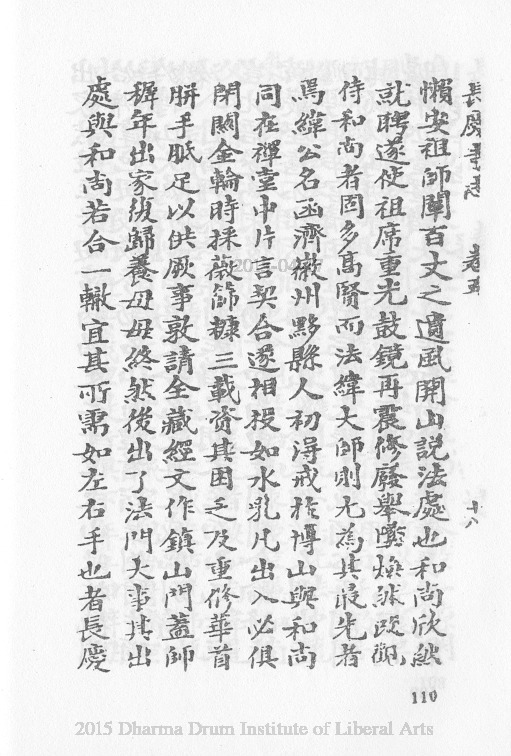 長慶寺志　卷五　十八
懶安祖師闡百丈之遺風開山說法處也和尚欣然
就聘遂使祖席重光鼓鏡再震修廢舉墜煥然改觀
侍和尚者固多高賢而法緯大師則尤為其最先者
焉緯公名函濟徽州黟縣人初得戒於博山與和尚
同在禪堂中片言契合遂相投如水乳凡出入必俱
閉關金輪時採薇篩糠三載資其困乏及重修華首
胼手胝足以供厥事敦請全藏經文作鎮山門蓋師
穉年出家復歸養母母終然後出了法門大事其出
處與和尚若合一轍宜其所需如左右手也者長慶
110
2015 Dharma Drum Institute of Liberal Arts